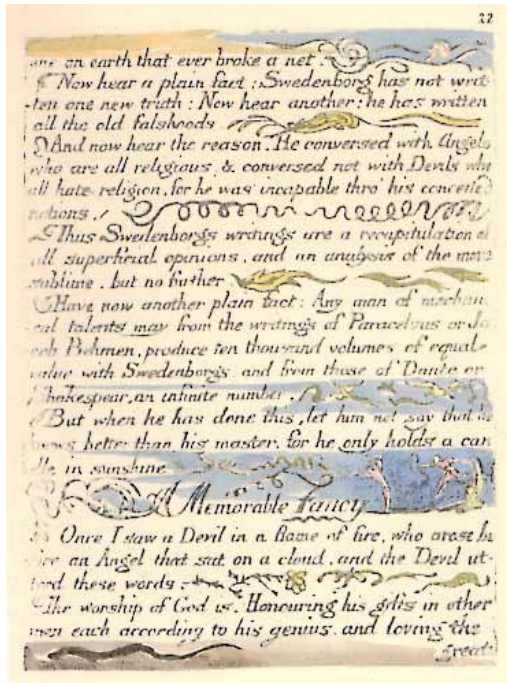 22
one on earth that ever broke a net.
Now hear a plain fact: Swedenborg has not writ-
ten one new truth: Now hear another: he has written
all the old falshoods
And now hear the reason. He conversed with Angels
who are all religious, & conversed not with Devils who
all hate religion, for he was incapable thro' his conceited
notions.
Thus Swedenborgs writings are a recapitulation of
all superficial opinions, and an analysis of the more
sublime, but no further.
Have now another plain fact: Any man of mechani
cal talents may from the writings of Paracelsus or Ja
cob Behmen, produce ten thousand volumes of equal
value with Swedenborgs. and from those of Dante or
Shakespear, an infinite number.
But when he has done this, let him not say that he
knows better than his master, for he only holds a can
dle in sunshine
A Memorable Fancy
Once I saw a Devil in a flame of fire, who arose be
fore an Angel that sat on a cloud, and the Devil ut-
terd these words
The worship of God is. Honouring his gifts in other
men each according to his genius. and loving the
great